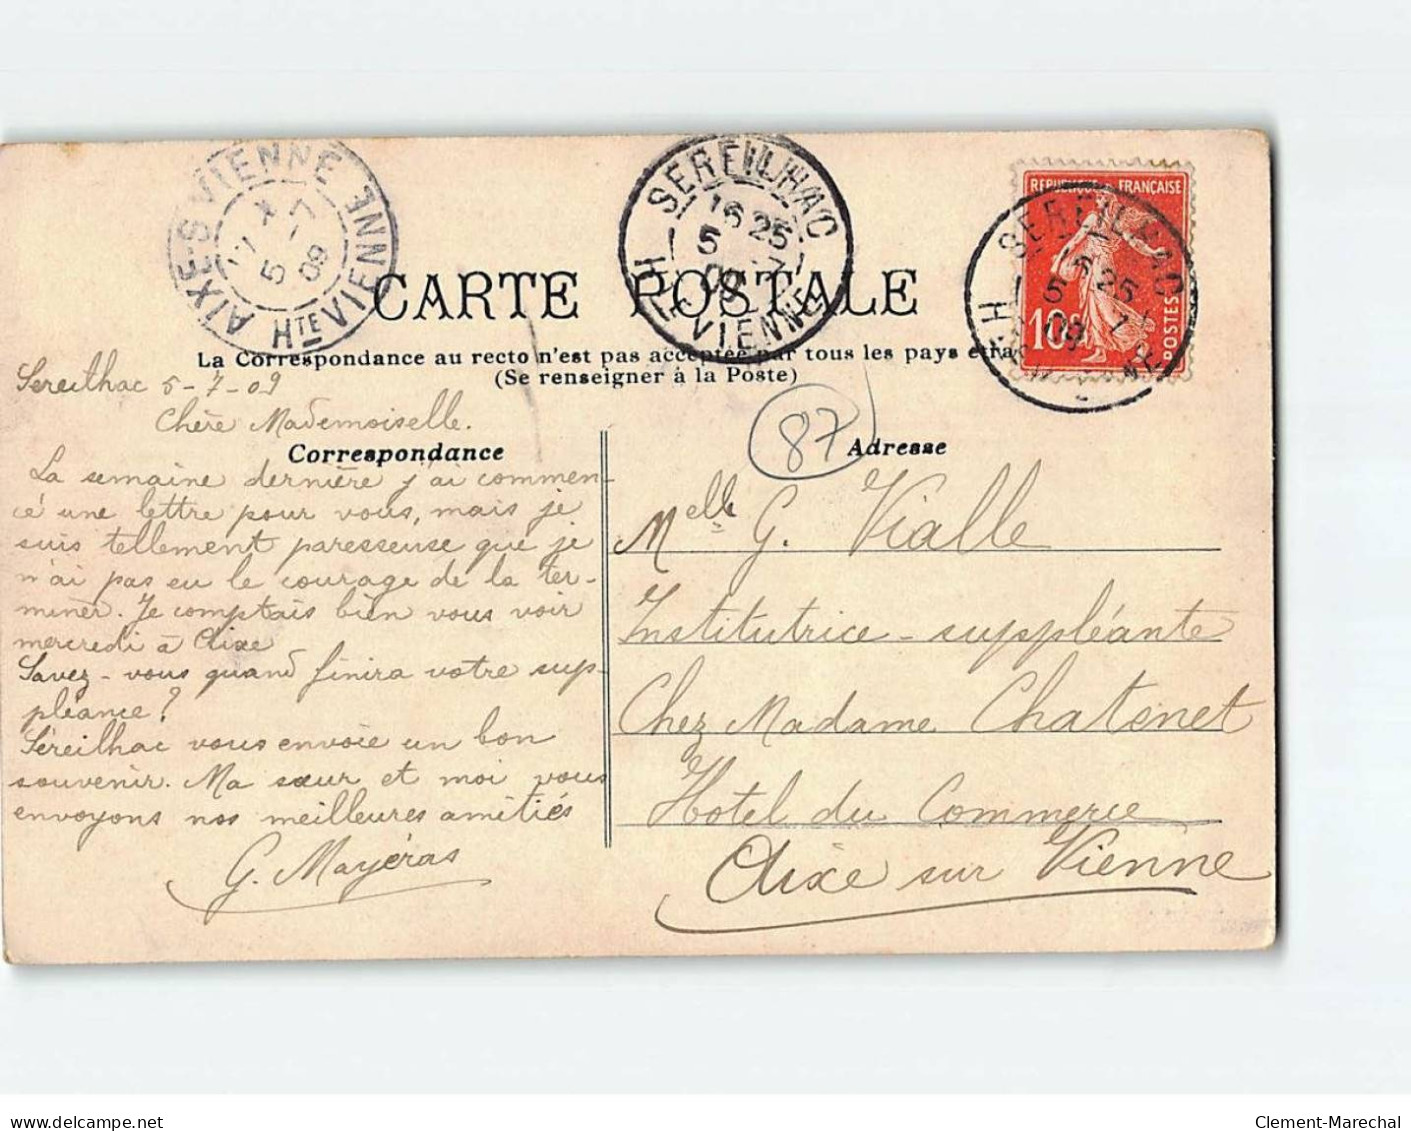 AIXE-S-VIENNE
5 -7
09
HTE VIENNE
SEREILHAC
16 25
5 -7
09
HTE VIENNE
REPUBLIQUE FRANÇAISE
10c
POSTES
SEREILHAC
16 25
5 -7
09
CARTE POSTALE
La Correspondance au recto n'est pas acceptée par tous les pays étra
(Se renseigner à la Poste)
87
Correspondance
Adresse
Sereilhac 5-7-09
Chère Mademoiselle.
La semaine dernière j'ai commen-
cé une lettre pour vous, mais je
suis tellement paresseuse que je
n'ai pas eu le courage de la ter-
miner. Je comptais bien vous voir
mercredi à Aixe
Savez-vous quand finira votre sup-
pléance?
Séreilhac vous envoie un bon
souvenir. Ma sœur et moi vous
envoyons nos meilleures amitiés
G. Mayéras
Melle G. Vialle
Institutrice-suppléante
Chez Madame Chatenet
Hotel du Commerce
Aixe sur Vienne
delcampe.net
Clement-Marechal